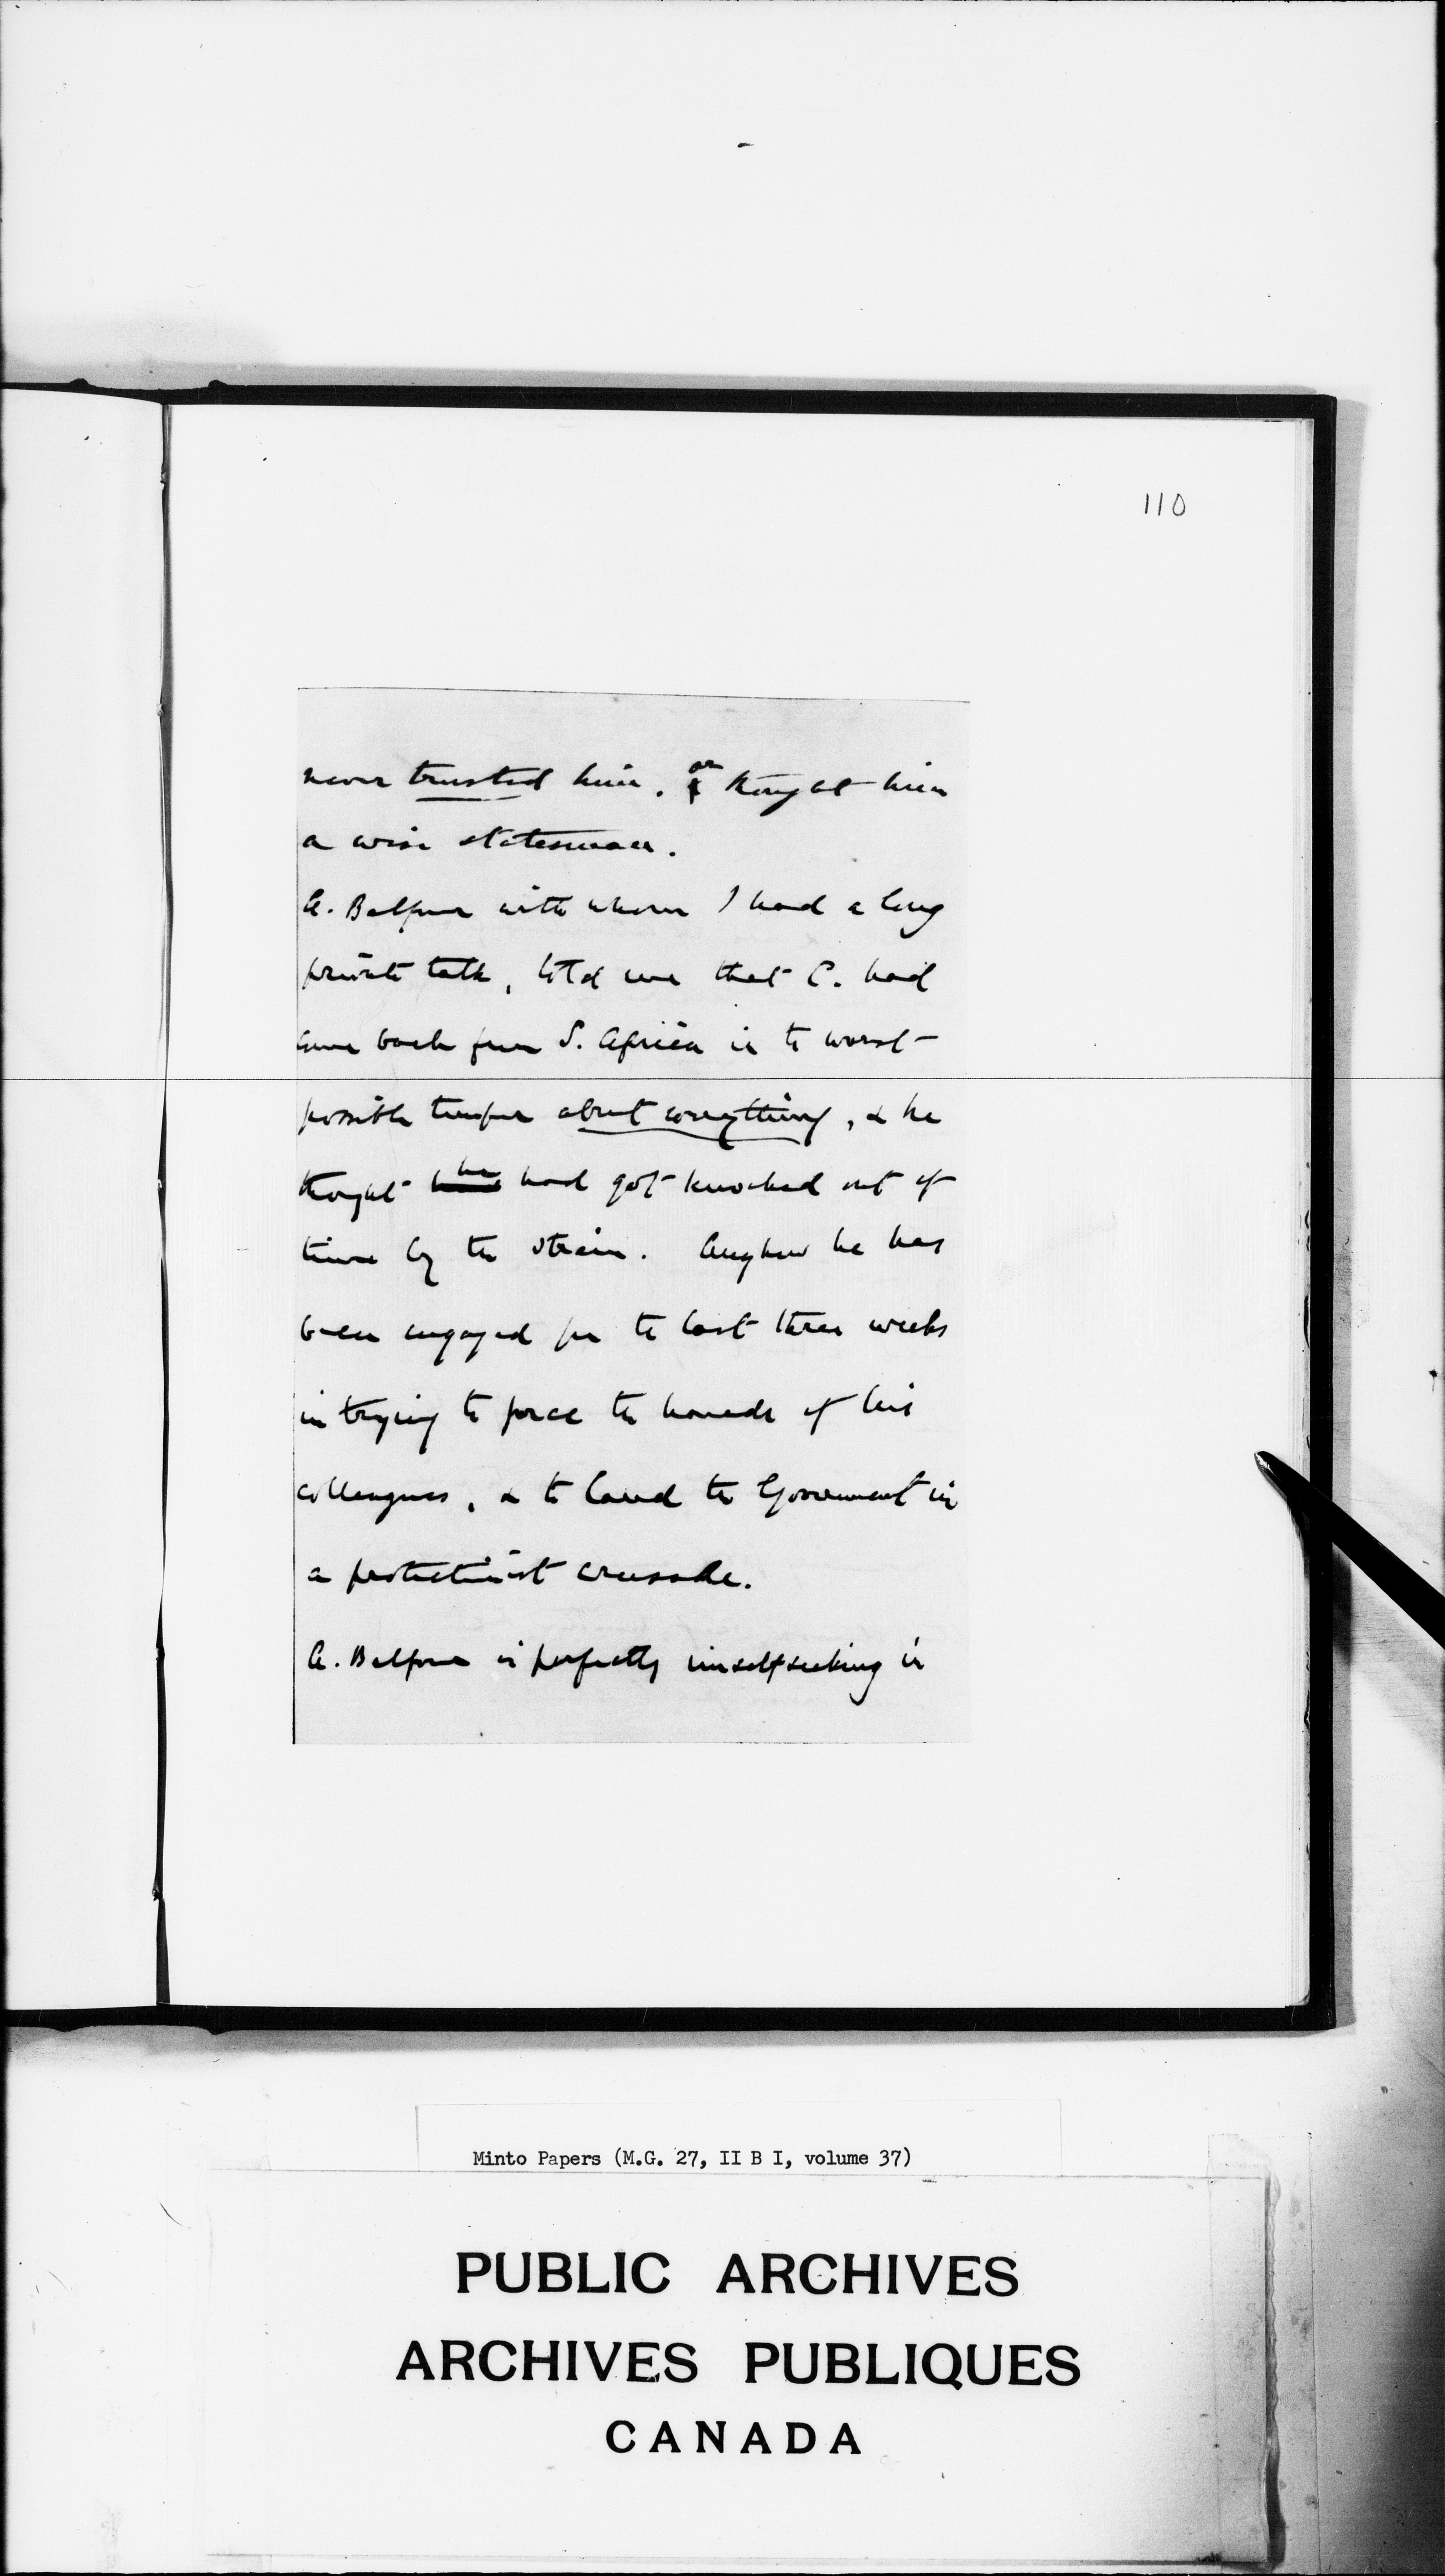 110
never trusted him. or thought him
a wise statesman.
A. Balfour with whom I had a long
private talk, told me that C. had
come back from S. Africa in the worst
possible temper about everything, & he
thought he had got knocked out of
time by the strain. Anyhow he has
been engaged for the last three weeks
in trying to force the hands of his
colleagues, & to land the Government in
a protectionist crusade.
A. Balfour is perfectly unselfseeking in
Minto Papers (M.G. 27, II B I, volume 37)
PUBLIC ARCHIVES
ARCHIVES PUBLIQUES
CANADA